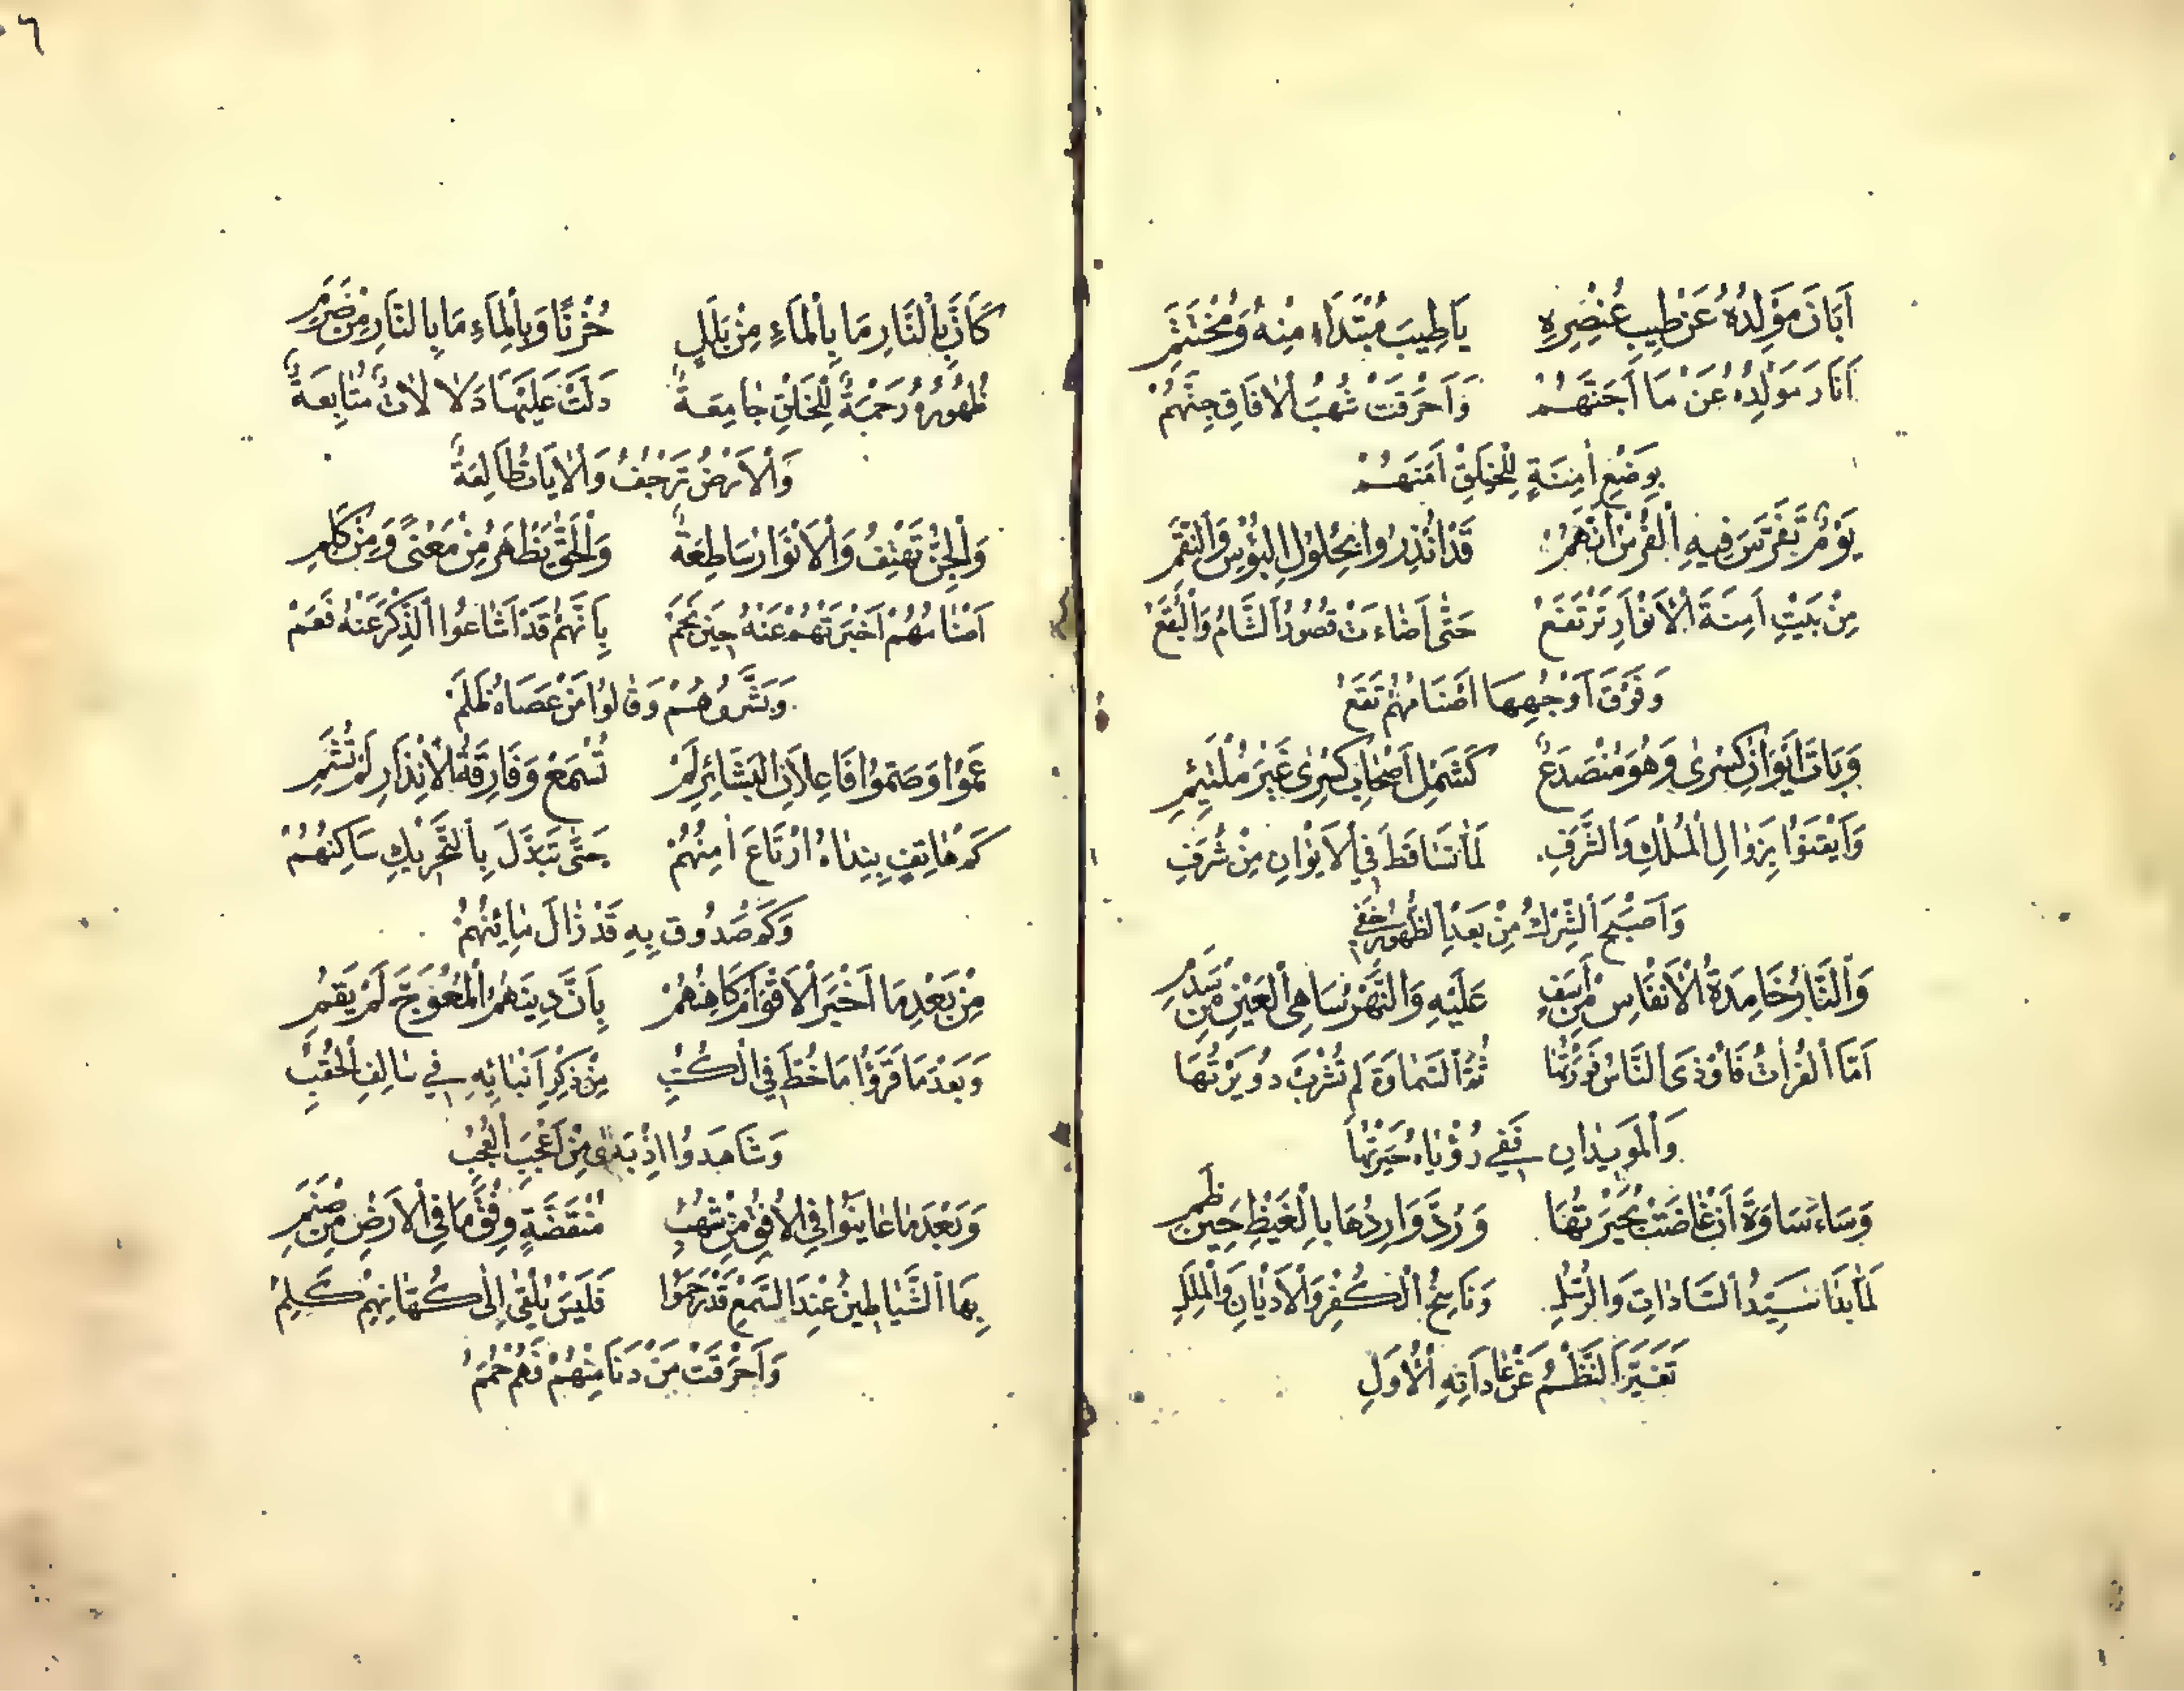 أَبَانَ مَوْلِدُهُ عَنْ طِيبِ عُنْصُرِهِ يَاطِيبَ مُبْتَدَاءٍ مِنْهُ وَمُخْتَتَمِ
أَنَارَ مَوْلِدُهُ عَنْ مَا أَجَنَّهُمْ وَأَحْرَقَتْ شُهُبُ الْآفَاقِ جِنَّهُمْ
بِوَضْعِ أَمِنَةٍ لِلْخَلْقِ أَمَنَهُمْ
يَوْمٌ تَفَرَّسَ فِيهِ الْفُرْسُ أَنَّهُمُ قَدْ أُنْذِرُوا بِحُلُولِ الْبُؤْسِ وَالنِّقَمِ
مِنْ بَيْتِ أَمِنَةَ الْأَنْوَارِ تَرْتَفَعْ حَتَّى أَضَاءَتْ قُصُورُ الشَّامِ وَالْبُقَعْ
وَفَوْقَ أَوْجُهِهَا أَصْنَامُهُمْ تَقَعْ
وَبَاتَ إِيْوَانُ كِسْرَى وَهُوَ مُنْصَدِعٌ كَشَمْلِ أَصْحَابِ كِسْرَى غَيْرَ مُلْتَئِمِ
وَأَيْقَنُوا بِزَوَالِ الْمُلْكِ وَالشَّرَفِ لَمَّا تَسَاقَطَ فِي الْإِيْوَانِ مِنْ شُرَفِ
وَأَصْبَحَ الشِّرْكُ مِنْ بَعْدِ الظُّهُورِ خَفِي
وَالنَّارُ خَامِدَةُ الْأَنْفَاسِ مِنْ أَسَفٍ عَلَيْهِ وَالنَّهْرُ سَاهِي الْعَيْنِ مِنْ سَدَمِ
أَمَّا الْفُرَاتُ فَأَوْذَى النَّاسُ نَوْرَتُهَا ثُمَّ السَّمَاوَةَ لَمْ تُشْرَبْ دُوَيْرَتُهَا
وَالْمَوْبِذَانِ فَفِي رُؤْيَاهُ حَيْرَتُهَا
وَسَاءَ سَاوَةَ أَنْ غَاضَتْ بُحَيْرَتُهَا وَرُدَّ وَارِدُهَا بِالْغَيْظِ حِينَ ظَمِ
لَمَّا بَدَا سَيِّدُ السَّادَاتِ وَالرُّسُلِ وَنَاسِخُ الْكُفْرِ وَالْأَدْيَانِ وَالْمِلَلِ
تَغَيَّرَ النَّظْمُ عَنْ عَادَاتِهِ الْأُوَلِ
٦
كَأَنَّ بِالنَّارِ مَا بِالْمَاءِ مِنْ بَلَلٍ حُزْنًا وَبِالْمَاءِ مَا بِالنَّارِ مِنْ ضَرَمِ
ظُهُورُهُ رَحْمَةٌ لِلْخَلْقِ جَامِعَةٌ دَلَّتْ عَلَيْهَا دَلَالَاتٌ مُتَابِعَةٌ
وَالْأَرْضُ تَرْجُفُ وَالْآيَاتُ طَالِعَةٌ
وَالْجِنُّ تَهْتِفُ وَالْأَنْوَارُ سَاطِعَةٌ وَالْحَقُّ يَظْهَرُ مِنْ مَعْنًى وَمِنْ كَلِمِ
أَصْنَامُهُمْ أَخْبَرَتْهُمْ عَنْهُ حِينَ نَجَمْ بِأَنَّهُمْ قَدْ أَشَاعُوا الذِّكْرَ عَنْهُ فَعَمْ
وَبَشَّرُوهُمْ وَقَالُوا مَنْ عَصَاهُ ظَلَمْ
عَمُوا وَصَمُّوا فَإِعْلَانُ الْبَشَائِرِ لَمْ تُسْمَعْ وَفَارِقَةُ الْإِنْذَارِ لَمْ تُشَمِ
كَمْ هَاتِفٍ بِنِدَاهُ ارْتَاعَ أَمِنُهُمْ حَتَّى تَبَدَّلَ بِالتَّحْرِيكِ سَاكِنُهُمْ
وَكَمْ صَدُوقٍ بِهِ قَدْ زَالَ مَائِنُهُمْ
مِنْ بَعْدِ مَا أَخْبَرَ الْأَقْوَامَ كَاهِنُهُمْ بِأَنَّ دِينَهُمُ الْمُعْوَجَّ لَمْ يَقُمِ
وَبَعْدَ مَا قَرَؤُا مَا خُطَّ فِي الْكُتُبِ مِنْ ذِكْرِ أَنْبَائِهِ فِي سَالِفِ الْحُقُبِ
وَشَاهَدُوا إِذْ بَدَى مِنْ أَعْجَبِ الْعُجْبِ
وَبَعْدَ مَا عَايَنُوا فِي الْأُفْقِ مِنْ شُهُبٍ مُنْقَضَّةٍ وَفْقَ مَا فِي الْأَرْضِ مِنْ صَنَمِ
بِهَا الشَّيَاطِينُ عِنْدَ السَّمْعِ قَدْ رُجِمُوا فَلَيْسَ يُلْقَى إِلَى كُهَّانِهِمْ كَلِمُ
وَأَحْرَقَتْ مَنْ دَنَا مِنْهُمْ فَهُمْ حُمَمُ